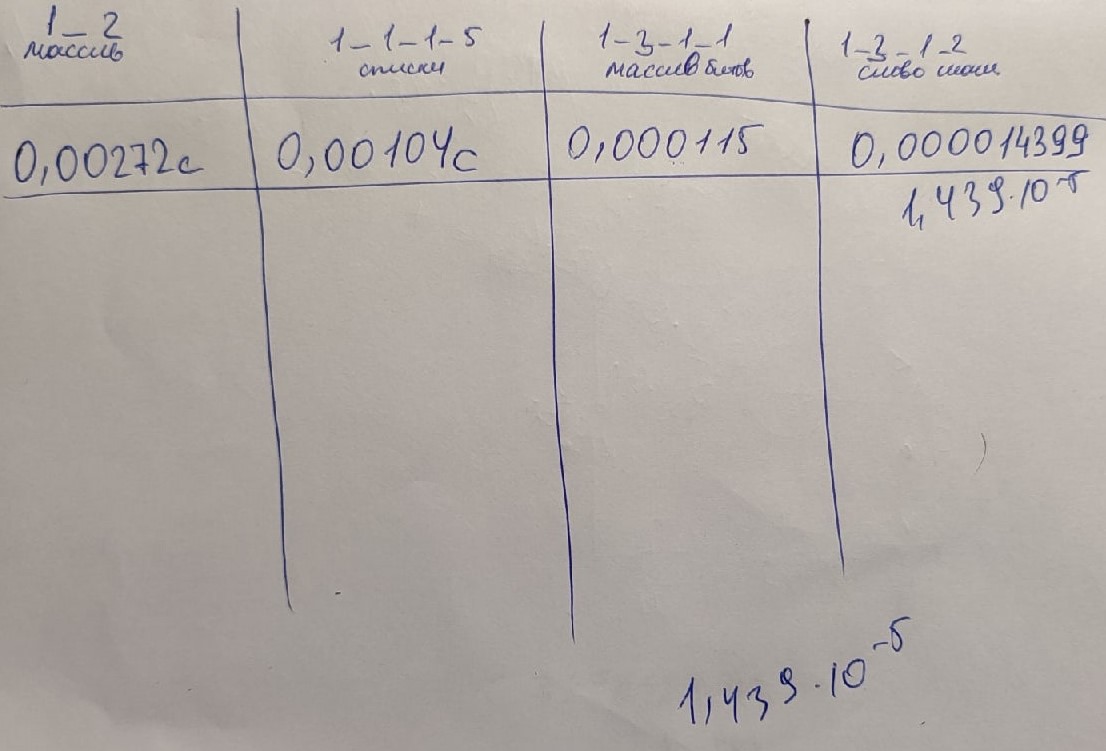 1_2
массив
1-1-1-5
списки
1-3-1-1
массив битов
1-3-1-2
слово маш
0,00272с
0,00104с
0,000115
0,000014399
1,439·10⁻⁵
1,439·10⁻⁵